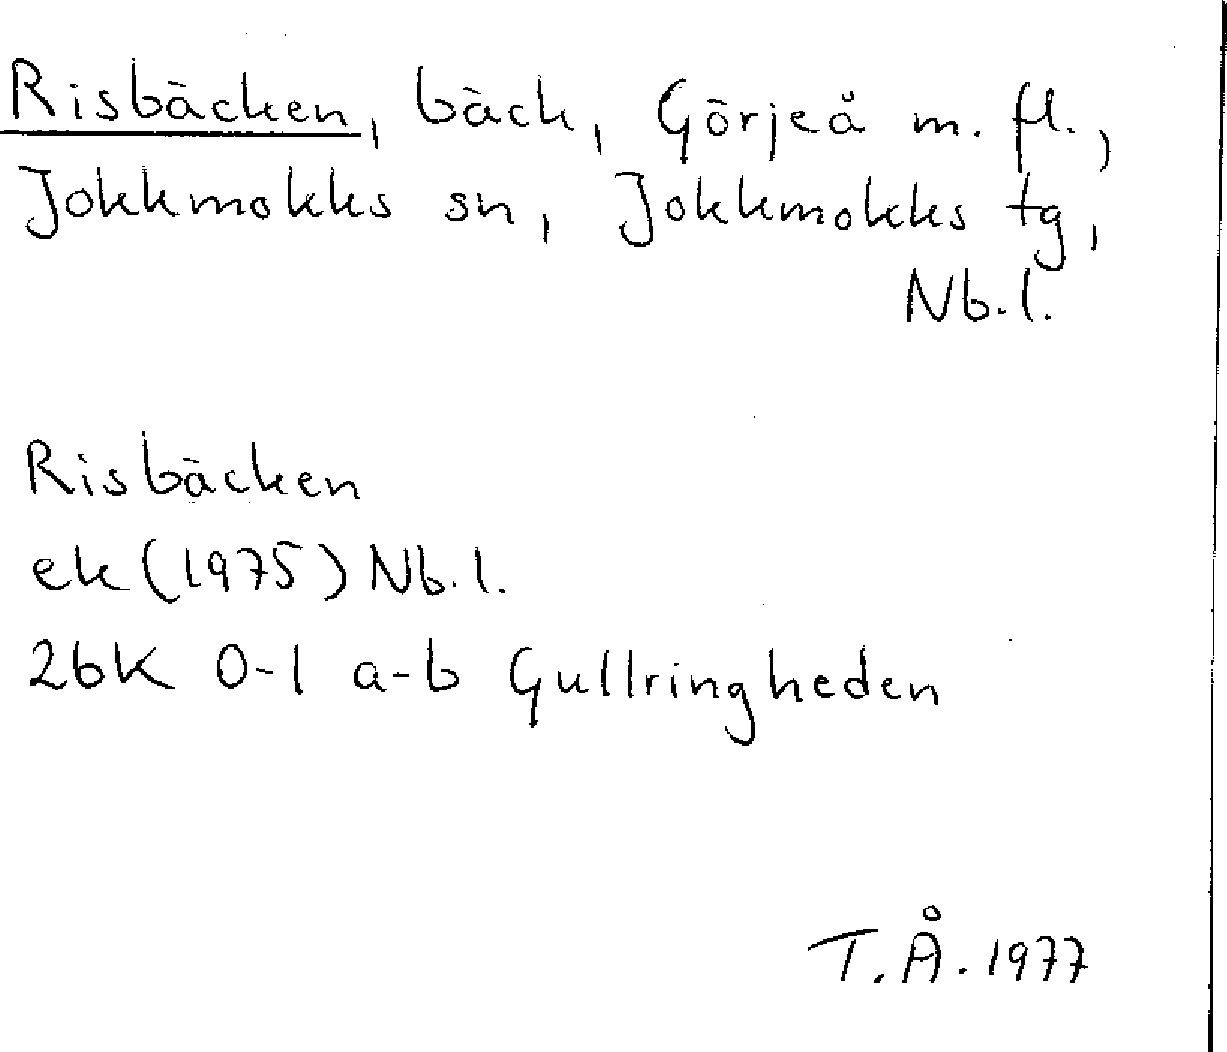 Risbäcken, bäck, Görjeå m. fl.,
Jokkmokks sn, Jokkmokks tg,
Nb.l.
Risbäcken
ek (1975) Nb.l.
26K 0-1 a-b Gullringheden
T.Å. 1977